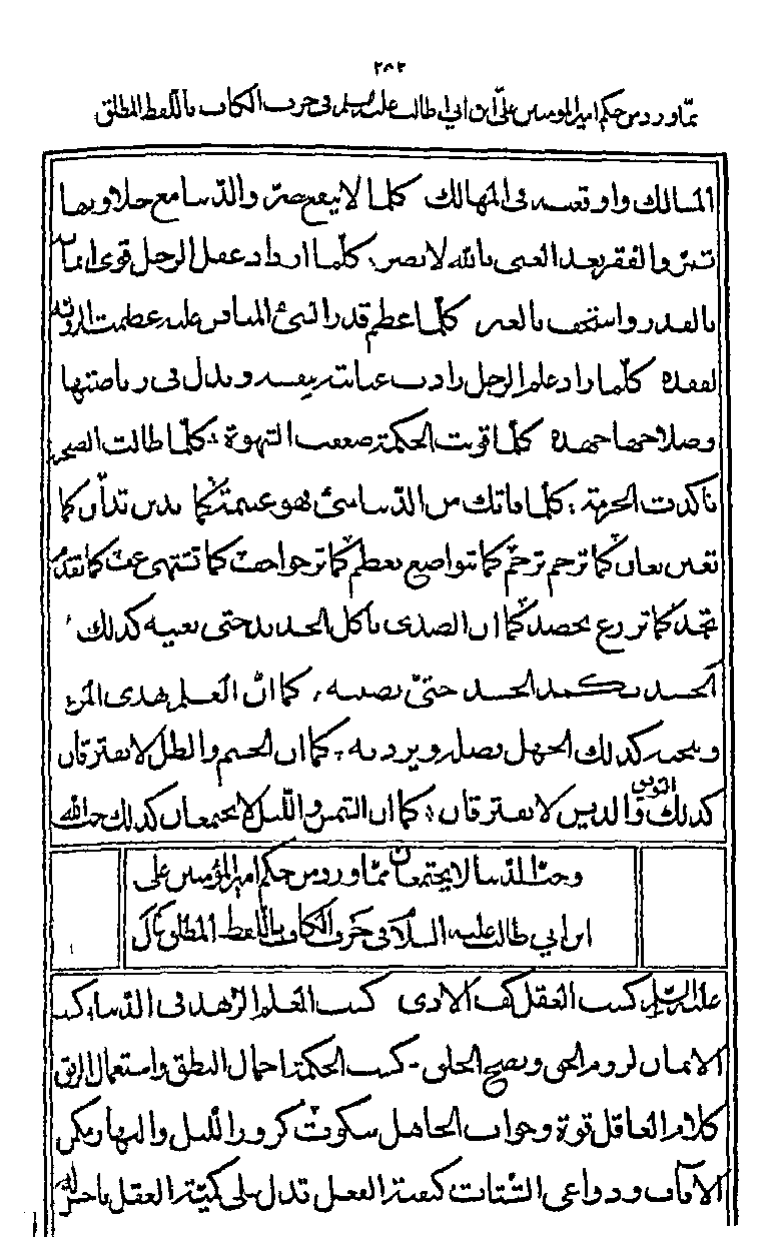 ٢٨٢
مما ورد من حكم امير المومنين علي ابن ابي طالب عليه السلم في حرف الكاف باللفظ المطلق
المسالك واوقعته في المهالك كلما لا ينفع يضر والدنيا مع حلاوتها
تمر والفقر بعد الغنى بالله لا يضر، كلما ازداد عقل الرجل قوى ايمانه
بالقدر واستخف بالغير كلما عظم قدر الشئ المنافس عليه عظمت الرزية
لفقده كلما زاد علم الرجل زادت عنايته بنفسه وبذل في رياضتها
وصلاحها جهده كلما قويت الحكمة ضعفت الشهوة ، كلما طالت الصحبة
تاكدت الحرمة ؛ كلما فاتك من الدنيا شئ فهو غنيمة كما تدين تدان كما
تعين تعان كما ترحم ترحم كما تتواضع تعظم كما ترجوا خف كما تشتهى عف كما تقدم
تجد كما تزرع تحصد كما ان الصدى ياكل الحديد حتى يفنيه كذلك
الحسد يكمد الجسد حتى يضنيه ، كما ان العلم يهدى المرء
وينجيه كذلك الجهل يضله ويرديه ، كما ان الجسم والظل لا يفترقان
كذلك التوفيق والدين لا يفترقان ؛ كما ان الشمس والليل لا يجتمعان كذلك حب الله
وحب الدنيا لا يجتمعان مما ورد من حكم امير المؤمنين على
ابن ابي طالب عليه السلام في حرف الكاف باللفظ المطلق قال
عليه السلم كسب العقل كف الاذى كسب العلم الزهد فى الدنيا، كسب
الايمان لزوم الحق ونصح الخلق - كسب الحكمة اجمال النطق واستعمال الرفق
كلام العاقل قوة وجواب الجاهل سكوت كرور الليل والنهار مكمن
الآفات ودواعى الشتات كيفية الفعل تدل على كمية العقل فاحسن له